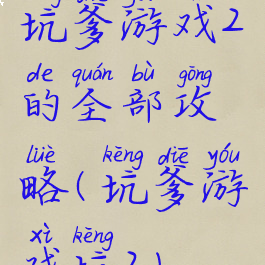 坑爹游戏2
de quán bù gōng
的全部攻
lüè kēng diē yóu
略(坑爹游
xì kēng